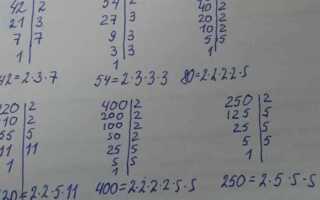 42 | 2
21 | 3
7 | 7
1
42=2·3·7
54 | 2
27 | 3
9 | 3
3 | 3
1
54=2·3·3·3
40 | 2
20 | 2
10 | 2
5 | 5
1
80=2·2·2·2·5
220 | 2
10 | 2
55 | 5
11 | 11
1
20=2·2·5·11
400 | 2
200 | 2
100 | 2
50 | 2
25 | 5
5 | 5
1
400=2·2·2·2·5·5
250 | 2
125 | 5
25 | 5
5 | 5
1
250=2·5·5·5